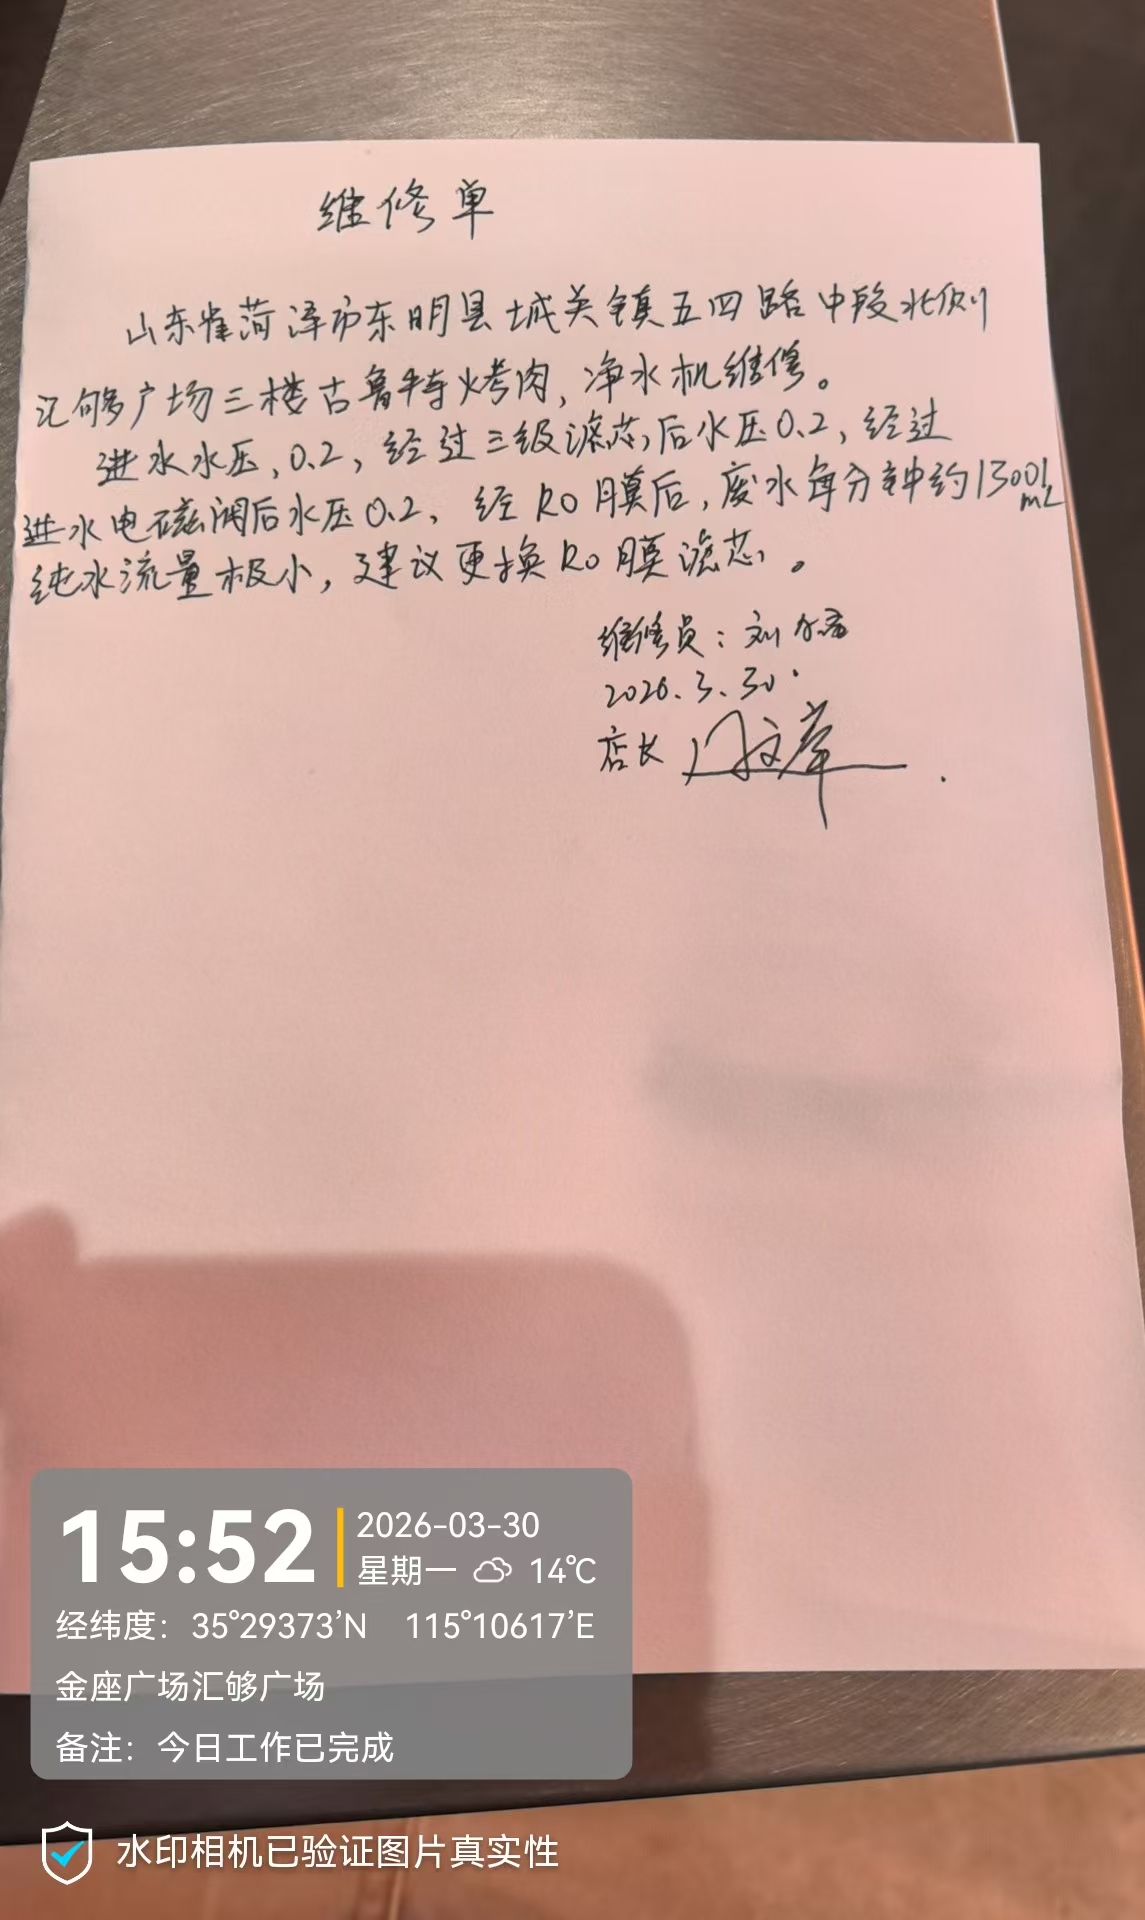 维修单
山东省菏泽市东明县城关镇五四路中段北侧
汇够广场三楼古鲁特烤肉,净水机维修。
进水水压,0.2,经过三级滤芯,后水压0.2,经过
进水电磁阀后水压0.2、经RO膜后,废水每分钟约1300
mL
纯水流量极小,建议更换RO膜滤芯。
维修员:刘
2026.3.30
店长
15:52
2026-03-30
星期一 14℃
经纬度:35°29373′N 115°10617′E
金座广场汇够广场
备注:今日工作已完成
水印相机已验证图片真实性